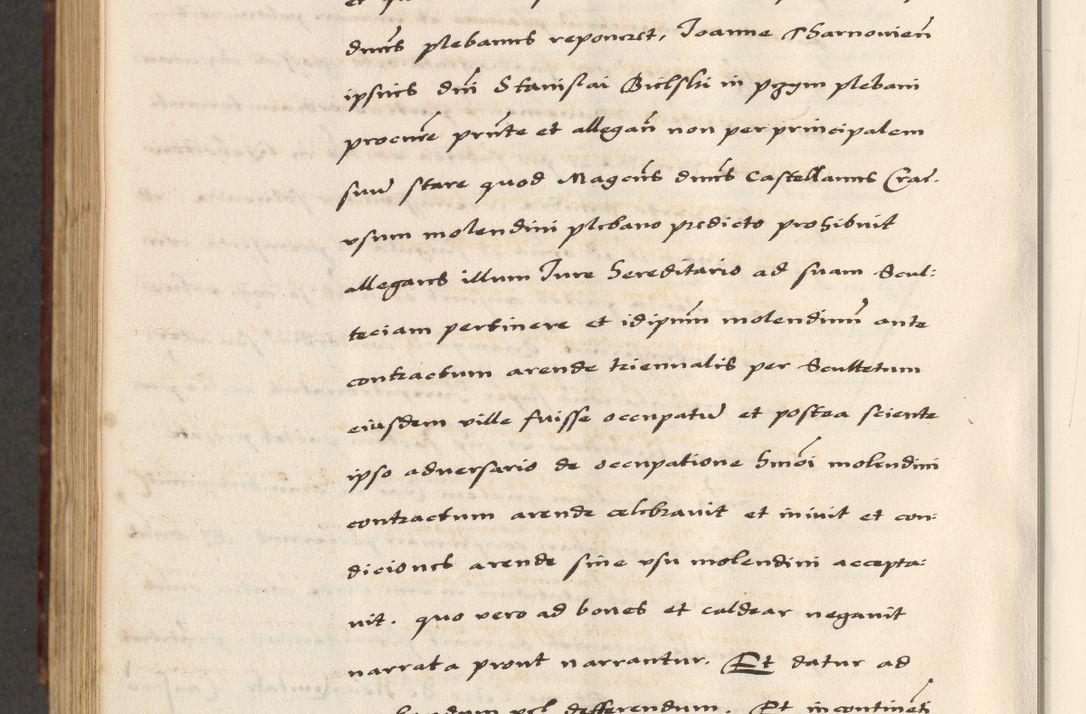 dnus plebanus reponeret, Joanne Tharnowien
ipsius dni Stanislai Bielski in pgym plebani
procure prnte et allegan non per principalem
suu stare quod Magcus dnus Castellanus Crac.
vsum molendini plebano predicto prohibuit
allegans illum Jure hereditario ad suam Scul:
teciam pertinere et idipsum molendinum ante
contractum arende triennalis per Scultetum
eiusdem ville fuisse occupatu et postea sciente
ipso adversario de occupatione hmoi molendini
contractum arende celebravit et iniuit et con:
diciones arende sine vsu molendini accepta:
uit. quo vero ad boues et caldear negauit
narrata prout narrantur. Et datur ad
vel defferendum. Et incontinenti